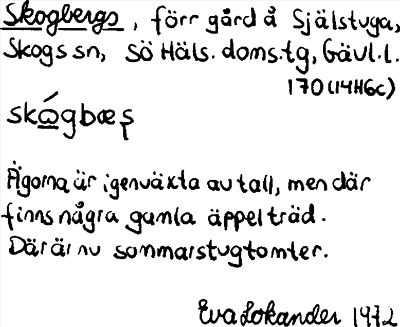 Skogbergs, förr gård å Själstuga,
Skogs sn, Sö Häls. doms.tg, Gävl.l.
170 (14H6c)
skǫ́gbæş
Ägorna är igenväxta av tall, men där
finns några gamla äppelträd.
Där är nu sommarstugtomter.
Eva Lokander 1972